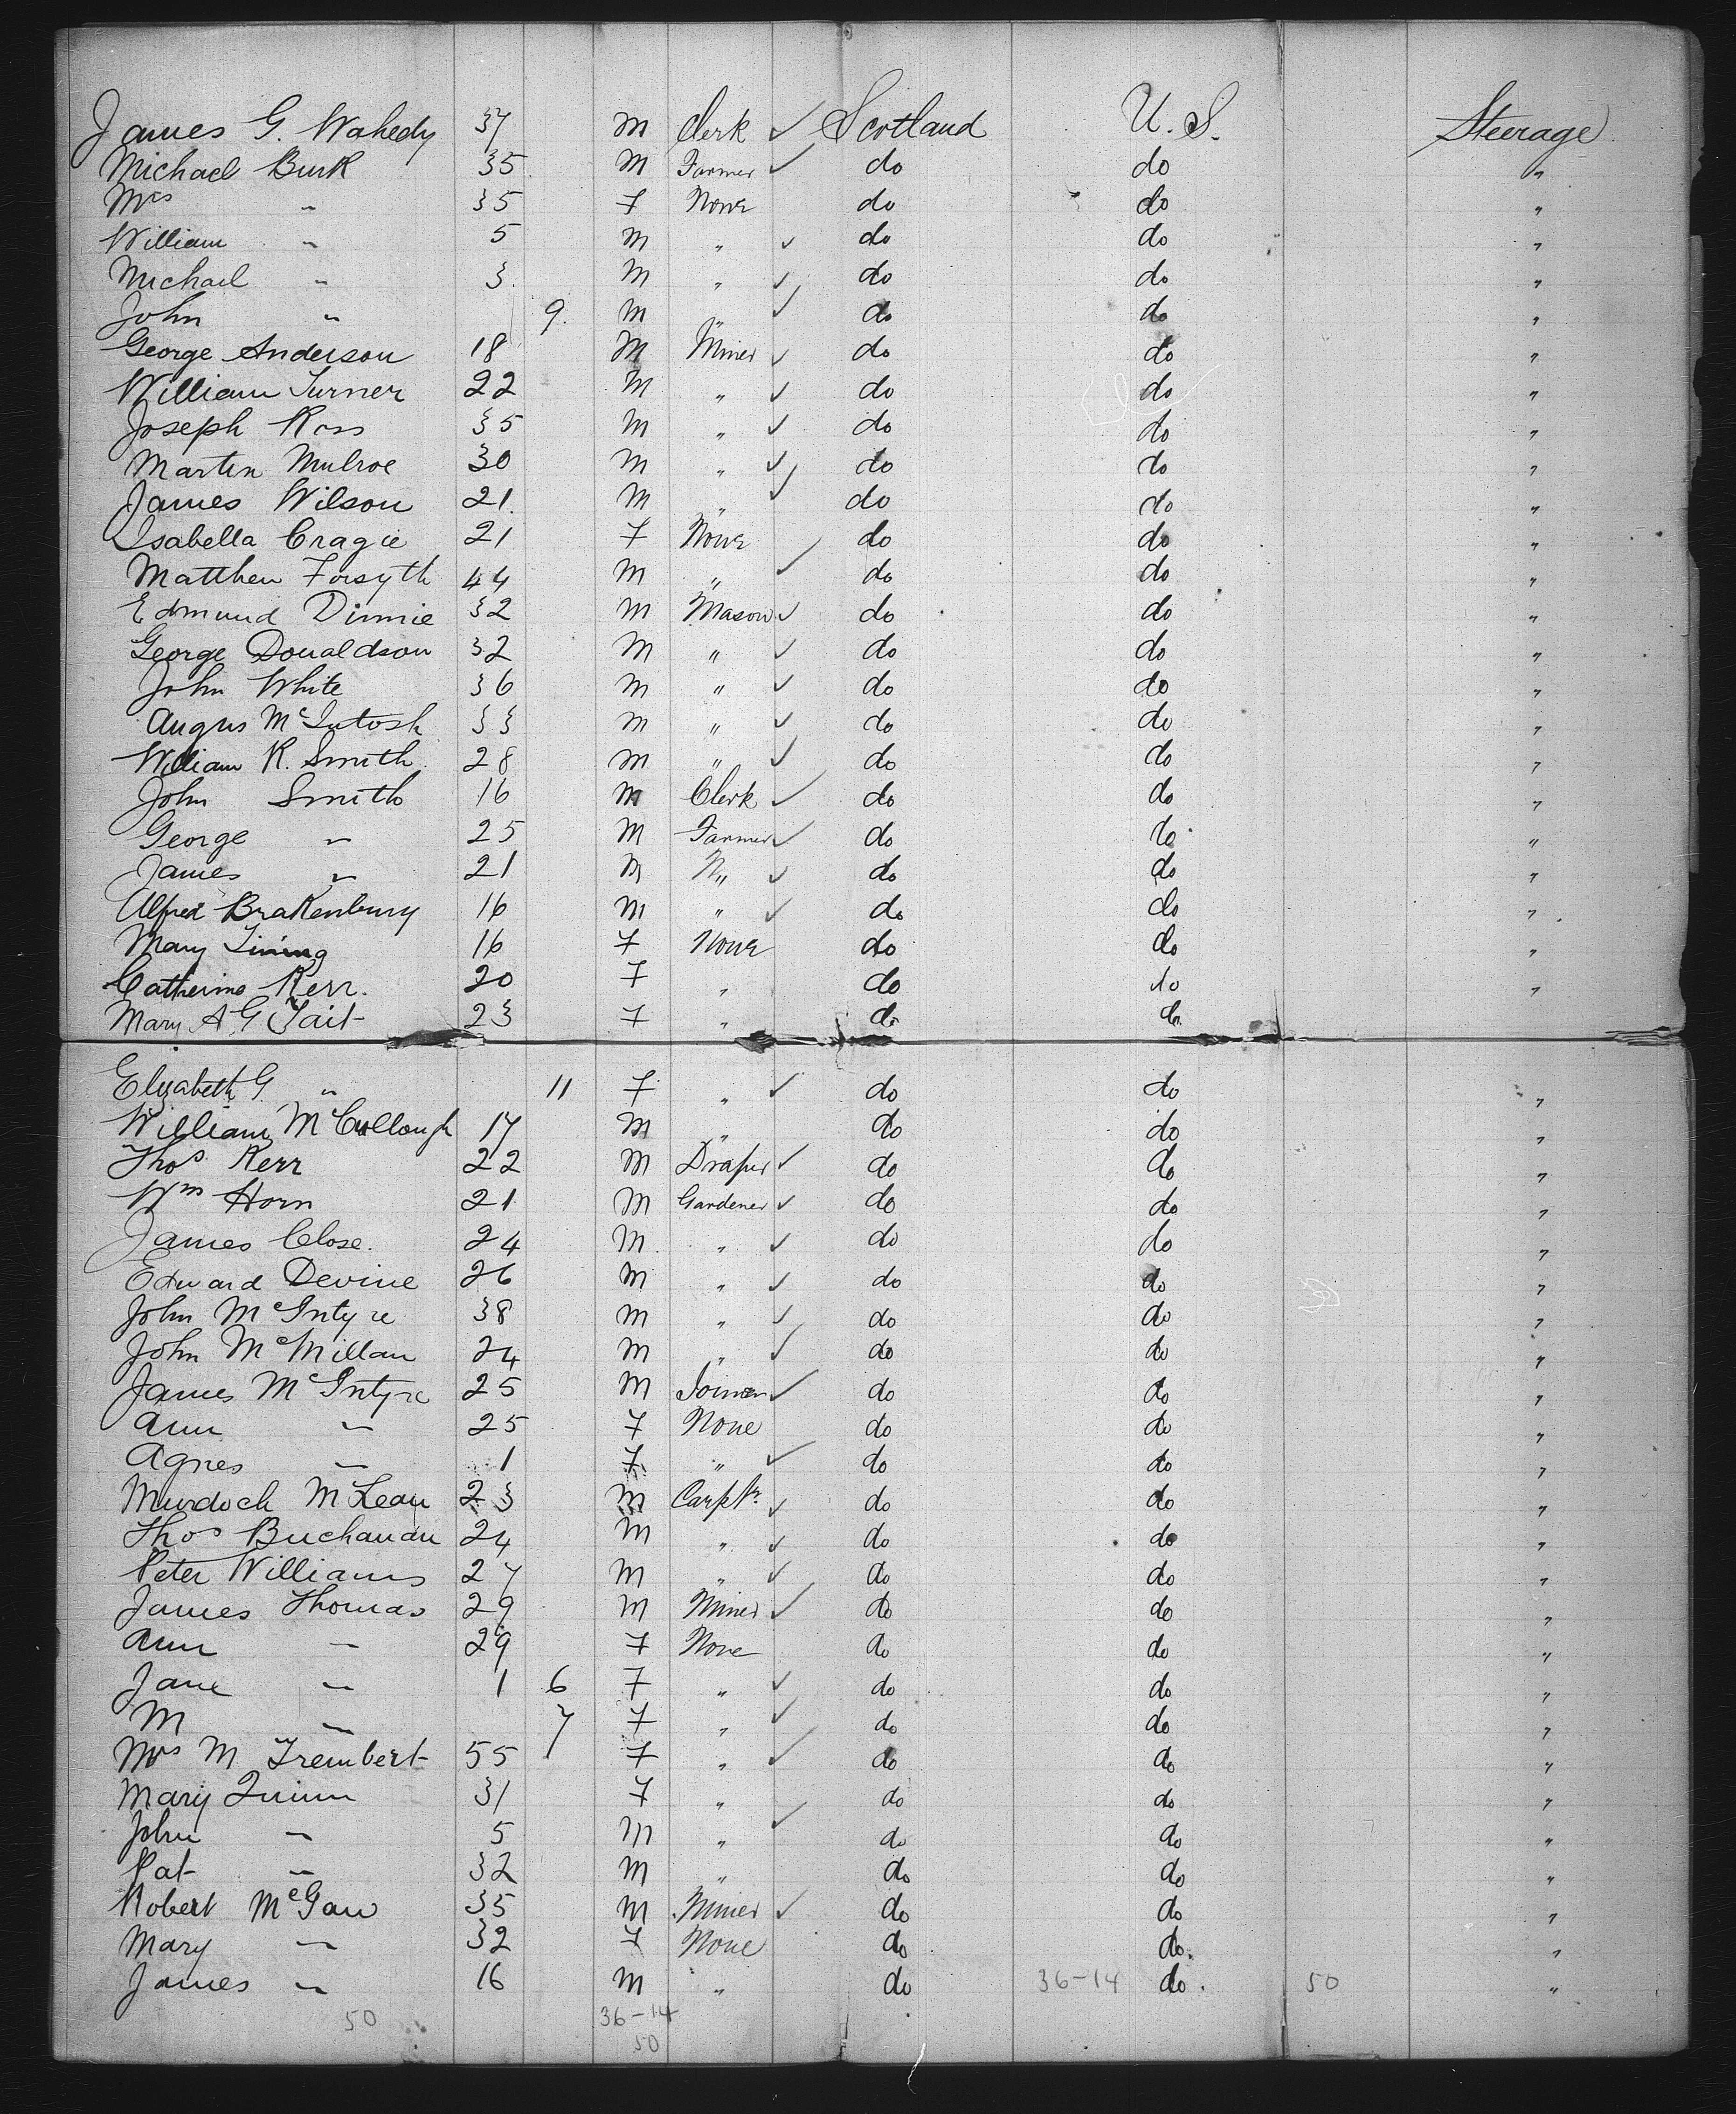 James G. Wahedy 37 M Clerk ✓ Scotland U. S. Steerage
Michael Burk 35 M Farmer ✓ do do "
Mrs " 35 F None do do "
William " 5 M " ✓ do do "
Michael " 3 M " ✓ do do "
John " 9 M " ✓ do do "
George Anderson 18 M Miner ✓ do do "
William Turner 22 M " ✓ do do "
Joseph Ross 35 M " ✓ do do "
Martin Mulroe 30 M " ✓ do do "
James Wilson 21 M " ✓ do do "
Isabella Cragie 21 F None do do "
Matthew Forsyth 44 M " ✓ do do "
Edmund Dinnie 32 M Mason ✓ do do "
George Donaldson 32 M " ✓ do do "
John White 36 M " ✓ do do "
Angus McIntosh 33 M " ✓ do do "
William R. Smith 28 M " ✓ do do "
John Smith 16 M Clerk ✓ do do "
George " 25 M Farmer ✓ do do "
James " 21 M " ✓ do do "
Alfred Brakenbury 16 M " ✓ do do "
Mary 16 F None do do "
Catherine Kerr. 20 F " do do "
Mary A G Tait 23 F " do do
Elizabeth G " 11 F " ✓ do do "
William McCullough 17 M " do do "
Thos Kerr 22 M Draper ✓ do do "
Wm Horn 21 M Gardener ✓ do do "
James Close. 24 M " ✓ do do "
Edward Devine 26 M " ✓ do do "
John McIntyre 38 M " ✓ do do "
John McMillan 24 M " ✓ do do "
James McIntyre 25 M Joiner ✓ do do "
Ann " 25 F None do do "
Agnes " 1 F " ✓ do do "
Murdoch McLean 23 M Carptr. ✓ do do "
Thos Buchanan 24 M " ✓ do do "
Peter Williams 27 M " ✓ do do "
James Thomas 29 M Miner ✓ do do "
Ann " 29 F None do do "
Jane " 1 6 F " ✓ do do "
M " 7 F " ✓ do do "
Mrs M Trembert 55 F " ✓ do do "
Mary Quinn 31 F " do do "
John " 5 M " ✓ do do "
Pat " 32 M " do do "
Robert McGaw 35 M Miner ✓ do do "
Mary " 32 F None do do "
James " 16 M " do 36-14 do 50 "
50 36-14
50